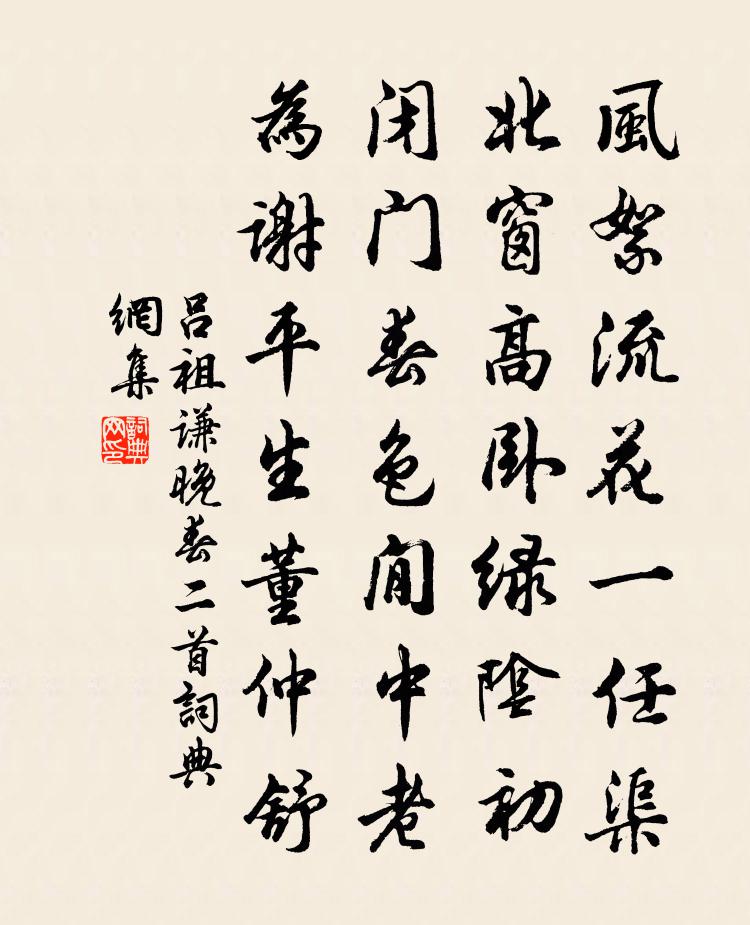 風絮流花一任渠
北窗高卧绿陰初
闭门春色间中老
為谢平生董仲舒
吕祖谦晚春二首詞典
網集
詞典
网印